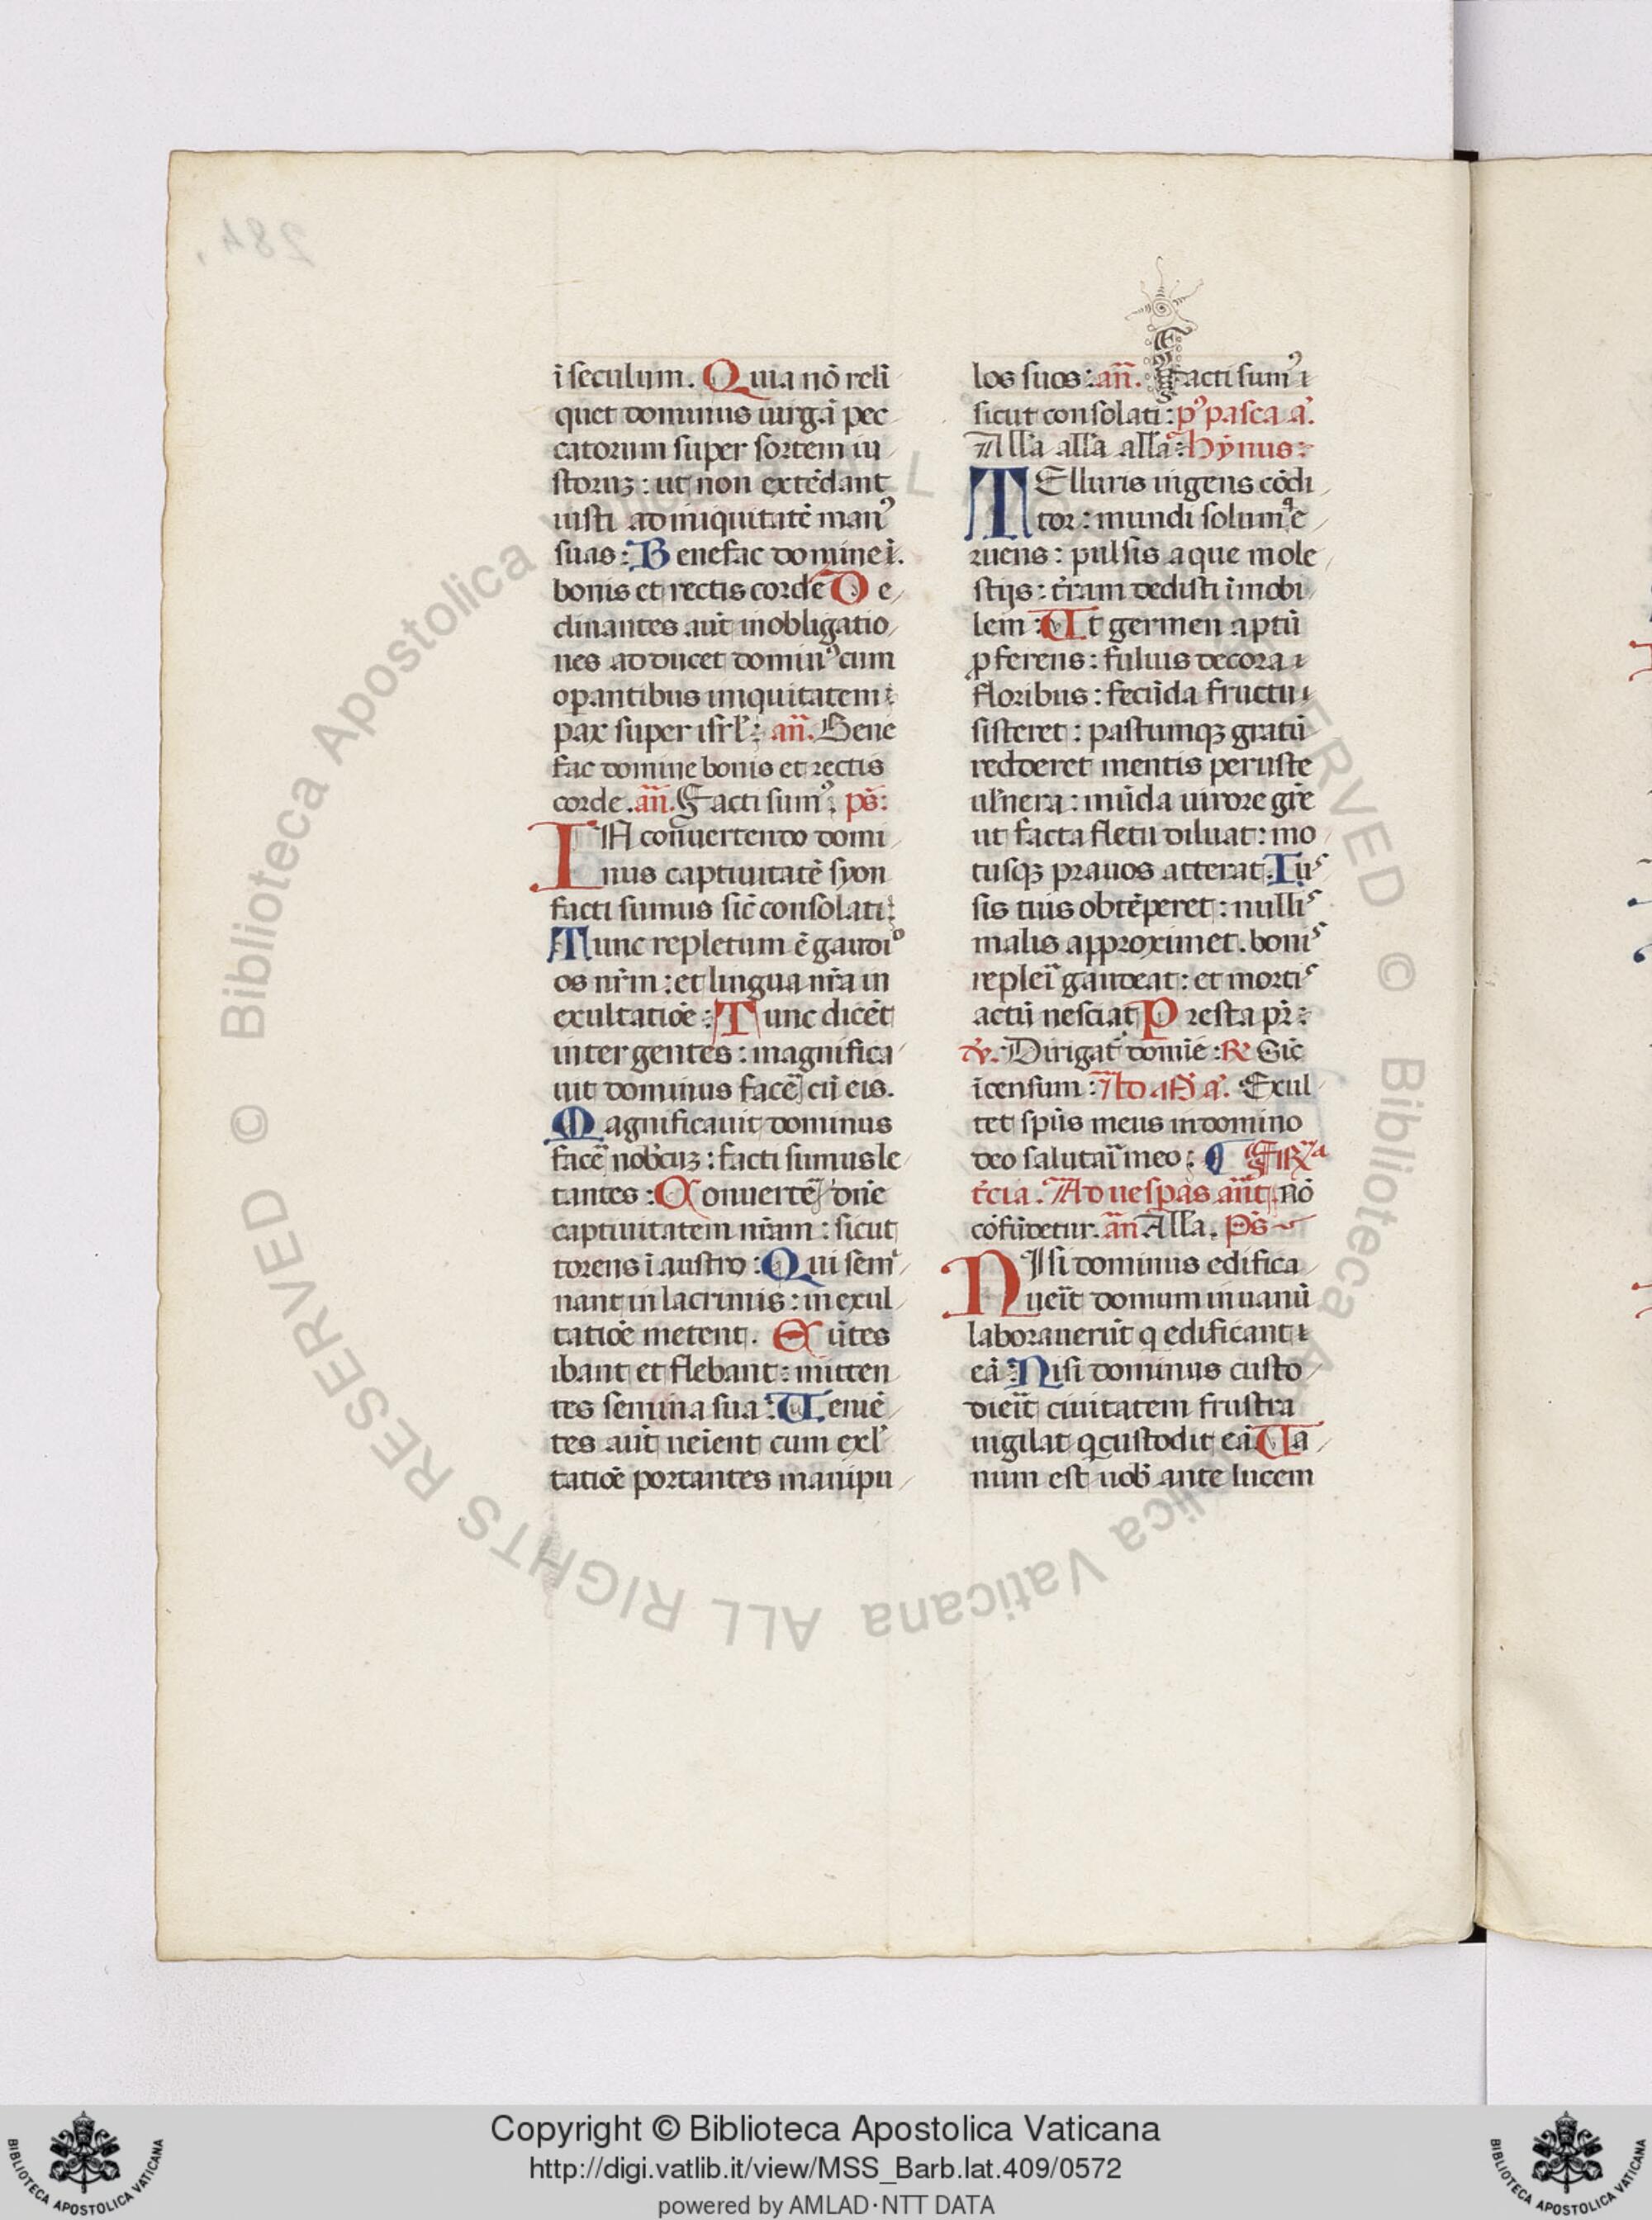 i seculum. Quia nō reli
quet dominus uirgā pec
catorum super sortem iu
storuꝫ : ut non extēdant
iusti ad iniquitatē manꝰ
suas : Benefac domine :
bonis et rectis corde De
clinantes aut̄ in obligatio
nes adducet dominꝰ cum
oꝑantibus iniquitatem :
pax super isrl̄ : an̄. Bene
fac domine bonis et rectis
corde . an̄. Facti sumꝰ. ps̄ :
IN conuertendo domi
nus captiuitatē syon
facti sumus sic̄ consolati :
Tunc repletum ē gaudio
os nr̄m : et lingua nr̄a in
exultatiōe : Tunc dicēt
inter gentes : magnifica
uit dominus facē cū eis.
Magnificauit dominus
facē nobcuꝫ : facti sumus le
tantes : Conuertē dn̄e
captiuitatem nr̄am : sicut
torens ī austro : Qui semi
nant in lacrimis : in exul
tatiōe metent . Eūtes
ibant et flebant : mitten
tes semina sua : Ueniē
tes aut̄ ueīent cum exl
tatiōe portantes manipu
los suos : an̄. Facti sumꝰ
sicut consolati : pꝰ pasca a᷒.
All̄a all̄a all̄a : hỹnus :
TElluris ingens cōdi
tor : mundi solum q̄ e
ruens : pulsis aque mole
stijs : t̄ram dedisti īmobi
lem : Ut germen aptū
ꝓferens : fuluis decora
floribus : fecūda fructu
sisteret : pastumqꝫ gratū
redderet mentis peruste
uln̄era : mūda uirore gr̄e
ut facta fletu diluat : mo
tusqꝫ prauos atterat. Ius
sis tuis obtēperet : nullis
malis approximet . bonis
repleī gaudeat : et mortis
actū nesciat Presta pr̄ :
℣. Dirigat̄ domīe : ℟ Sic̄
īcensum : Ad m̄ a᷒. Exul
tet spūs meus in domino
deo salutaī meo : ¶ Fer̄ia
t̄cia . Ad uesperas an̄t nō
cōfūdetur. an̄ All̄a . Ps̄
NIsi dominus edifica
ueīt domum in uanū
laborauerūt q edificant
eā : Nisi dominus custo
dieīt ciuitatem frustra
uigilat q custodit eā. Ua
num est uob̄ ante lucem
Copyright © Biblioteca Apostolica Vaticana
http://digi.vatlib.it/view/MSS_Barb.lat.409/0572
powered by AMLAD·NTT DATA